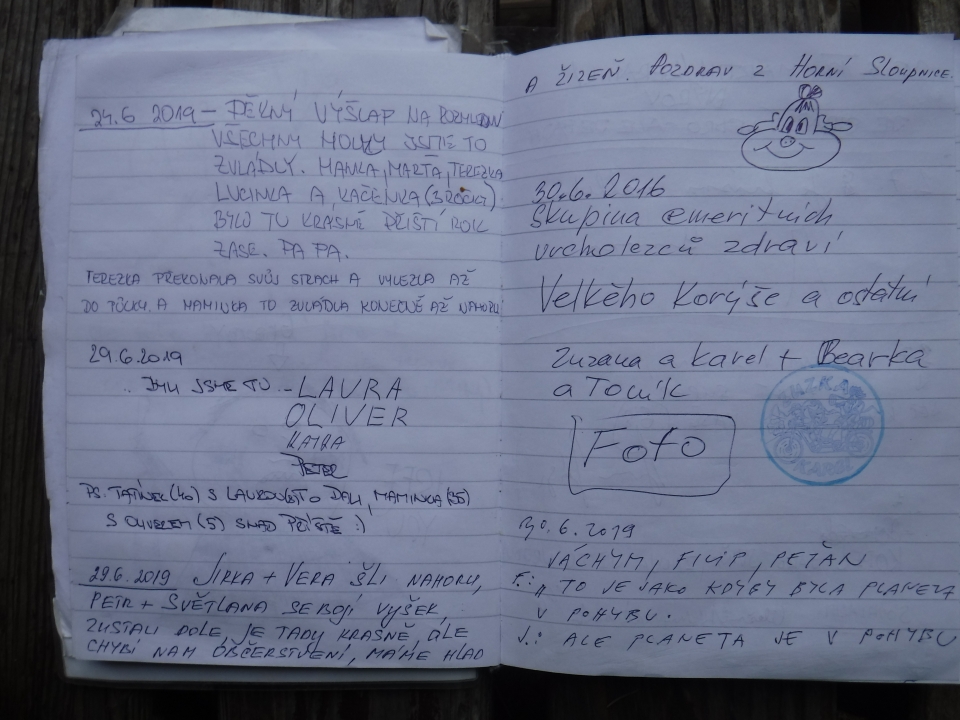 24.6 2019 – PĚKNÝ VÝŠLAP NA ROZHLEDNU
VŠECHNY HOLKY JSME TO
ZVLÁDLY. HANKA, MARŤA, TEREZKA
LUCINKA A KAČENKA (3 ROČKY)
BYLO TU KRÁSNĚ PŘÍŠTÍ ROK
ZASE. PA PA.
TEREZKA PŘEKONALA SVŮJ STRACH A VYLEZLA AŽ
DO TOČKY, A MAMINKA TO ZVLÁDLA KONEČNĚ AŽ NAHORU
29.6.2019
.. BYLI JSME TU – LAURA
OLIVER
KATKA
PETER
PS. TATÍNEK (40) S LAUROU TO DALI, MAMINKA (35)
S OLIVEREM (5) SNAD PŘÍŠTĚ :)
29.6.2019 JIRKA + VĚRA ŠLI NAHORU,
PETR + SVĚTLANA SE BOJÍ VÝŠEK,
ZŮSTALI DOLE, JE TADY KRÁSNĚ, ALE
CHYBÍ NÁM OBČERSTVENÍ, MÁME HLAD
A ŽÍZEŇ. POZDRAV Z HORNÍ SLOUPNICE.
30.6.2016
Skupina emeritních
vrcholezců zdraví
Velkého Korýše a ostatní
Zuzana a Karel + Bearka
a Toník
Foto
30.6.2019
JÁCHYM, FILIP, PEŤAN
F.: „TO JE JAKO KDYBY BYLA PLANETA
V POHYBU.
J.: ALE PLANETA JE V POHYBU